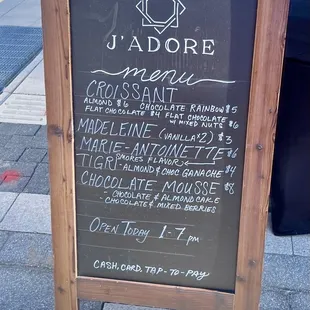 J'ADORE
menu
CROISSANT
ALMOND $6 CHOCOLATE RAINBOW $5
FLAT CHOCOLATE $4 FLAT CHOCOLATE $6
W MIXED NUTS
MADELEINE (VANILLA*2) $3
MARIE-ANTOINETTE $6
TIGRE (SMORES FLAVOR)
-ALMOND & CHOC GANACHE $4
CHOCOLATE MOUSSE $8
- CHOCOLATE & ALMOND CAKE
- CHOCOLATE & MIXED BERRIES
OPEN TODAY 1-7PM
CASH, CARD, TAP-TO-PAY